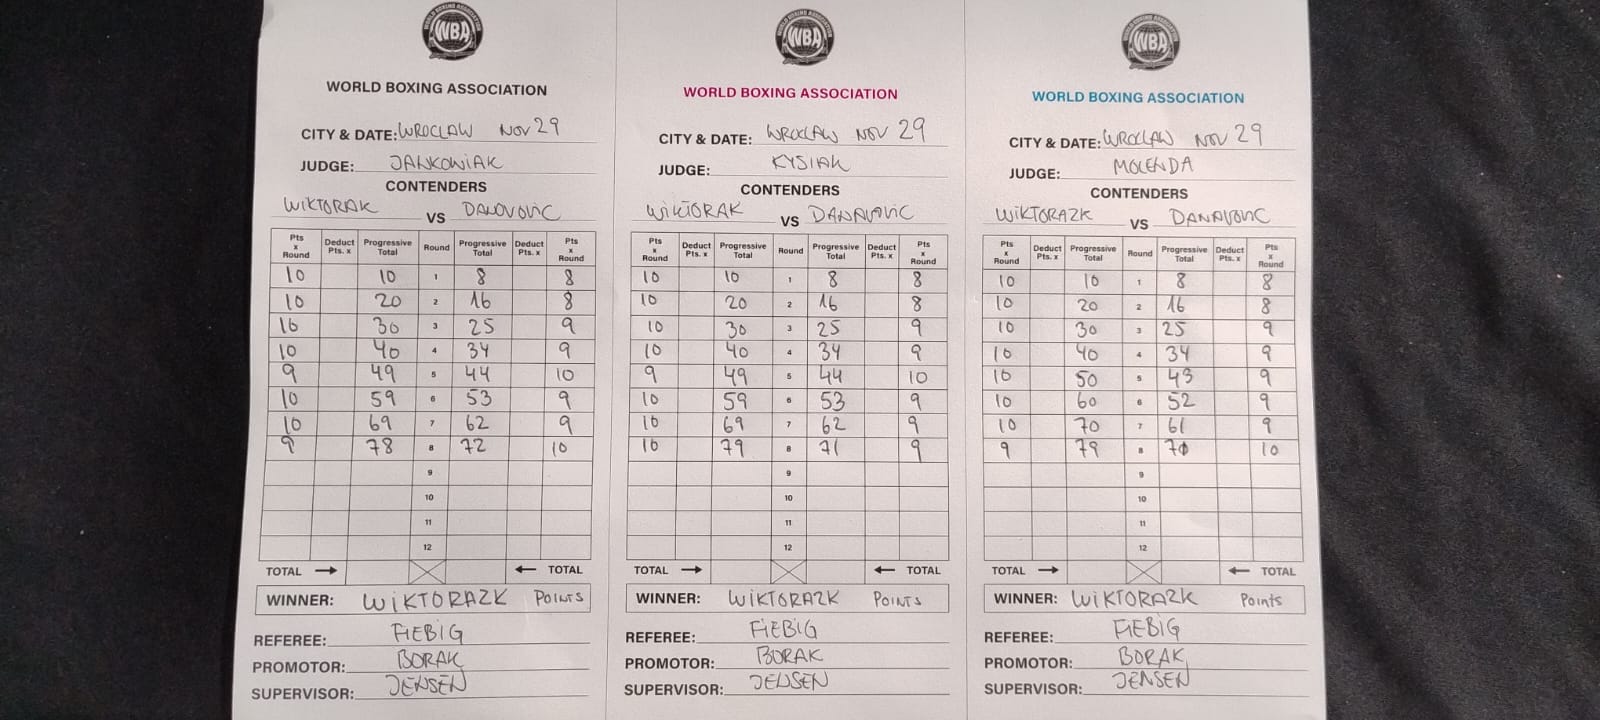 WORLD BOXING ASSOCIATION
WBA
WORLD BOXING ASSOCIATION
CITY & DATE: WROCLAW NOV 29
JUDGE: JANKOWIAK
CONTENDERS
WIKTORAK VS DANOVOVIC
Pts x Round Deduct Pts. x Progressive Total Round Progressive Total Deduct Pts. x Pts x Round
10 10 1 8 8
10 20 2 16 8
10 30 3 25 9
10 40 4 34 9
9 49 5 44 10
10 59 6 53 9
10 69 7 62 9
9 78 8 72 10
9
10
11
12
TOTAL TOTAL
WINNER: WIKTORAZK POINTS
REFEREE: FIEBIG
PROMOTOR: BORAK
SUPERVISOR: JENSEN
WORLD BOXING ASSOCIATION
WBA
WORLD BOXING ASSOCIATION
CITY & DATE: WROCLAW NOV 29
JUDGE: KYSIAK
CONTENDERS
WIKTORAK VS DANAVOVIC
Pts x Round Deduct Pts. x Progressive Total Round Progressive Total Deduct Pts. x Pts x Round
10 10 1 8 8
10 20 2 16 8
10 30 3 25 9
10 40 4 34 9
9 49 5 44 10
10 59 6 53 9
10 69 7 62 9
10 79 8 71 9
9
10
11
12
TOTAL TOTAL
WINNER: WIKTORAZK POINTS
REFEREE: FIEBIG
PROMOTOR: BORAK
SUPERVISOR: JENSEN
WORLD BOXING ASSOCIATION
WBA
WORLD BOXING ASSOCIATION
CITY & DATE: WROCLAW NOV 29
JUDGE: MOLENDA
CONTENDERS
WIKTORAZK VS DANAVOVIC
Pts x Round Deduct Pts. x Progressive Total Round Progressive Total Deduct Pts. x Pts x Round
10 10 1 8 8
10 20 2 16 8
10 30 3 25 9
10 40 4 34 9
10 50 5 43 9
10 60 6 52 9
10 70 7 61 9
9 79 8 71 10
9
10
11
12
TOTAL TOTAL
WINNER: WIKTORAZK Points
REFEREE: FIEBIG
PROMOTOR: BORAK
SUPERVISOR: JENSEN